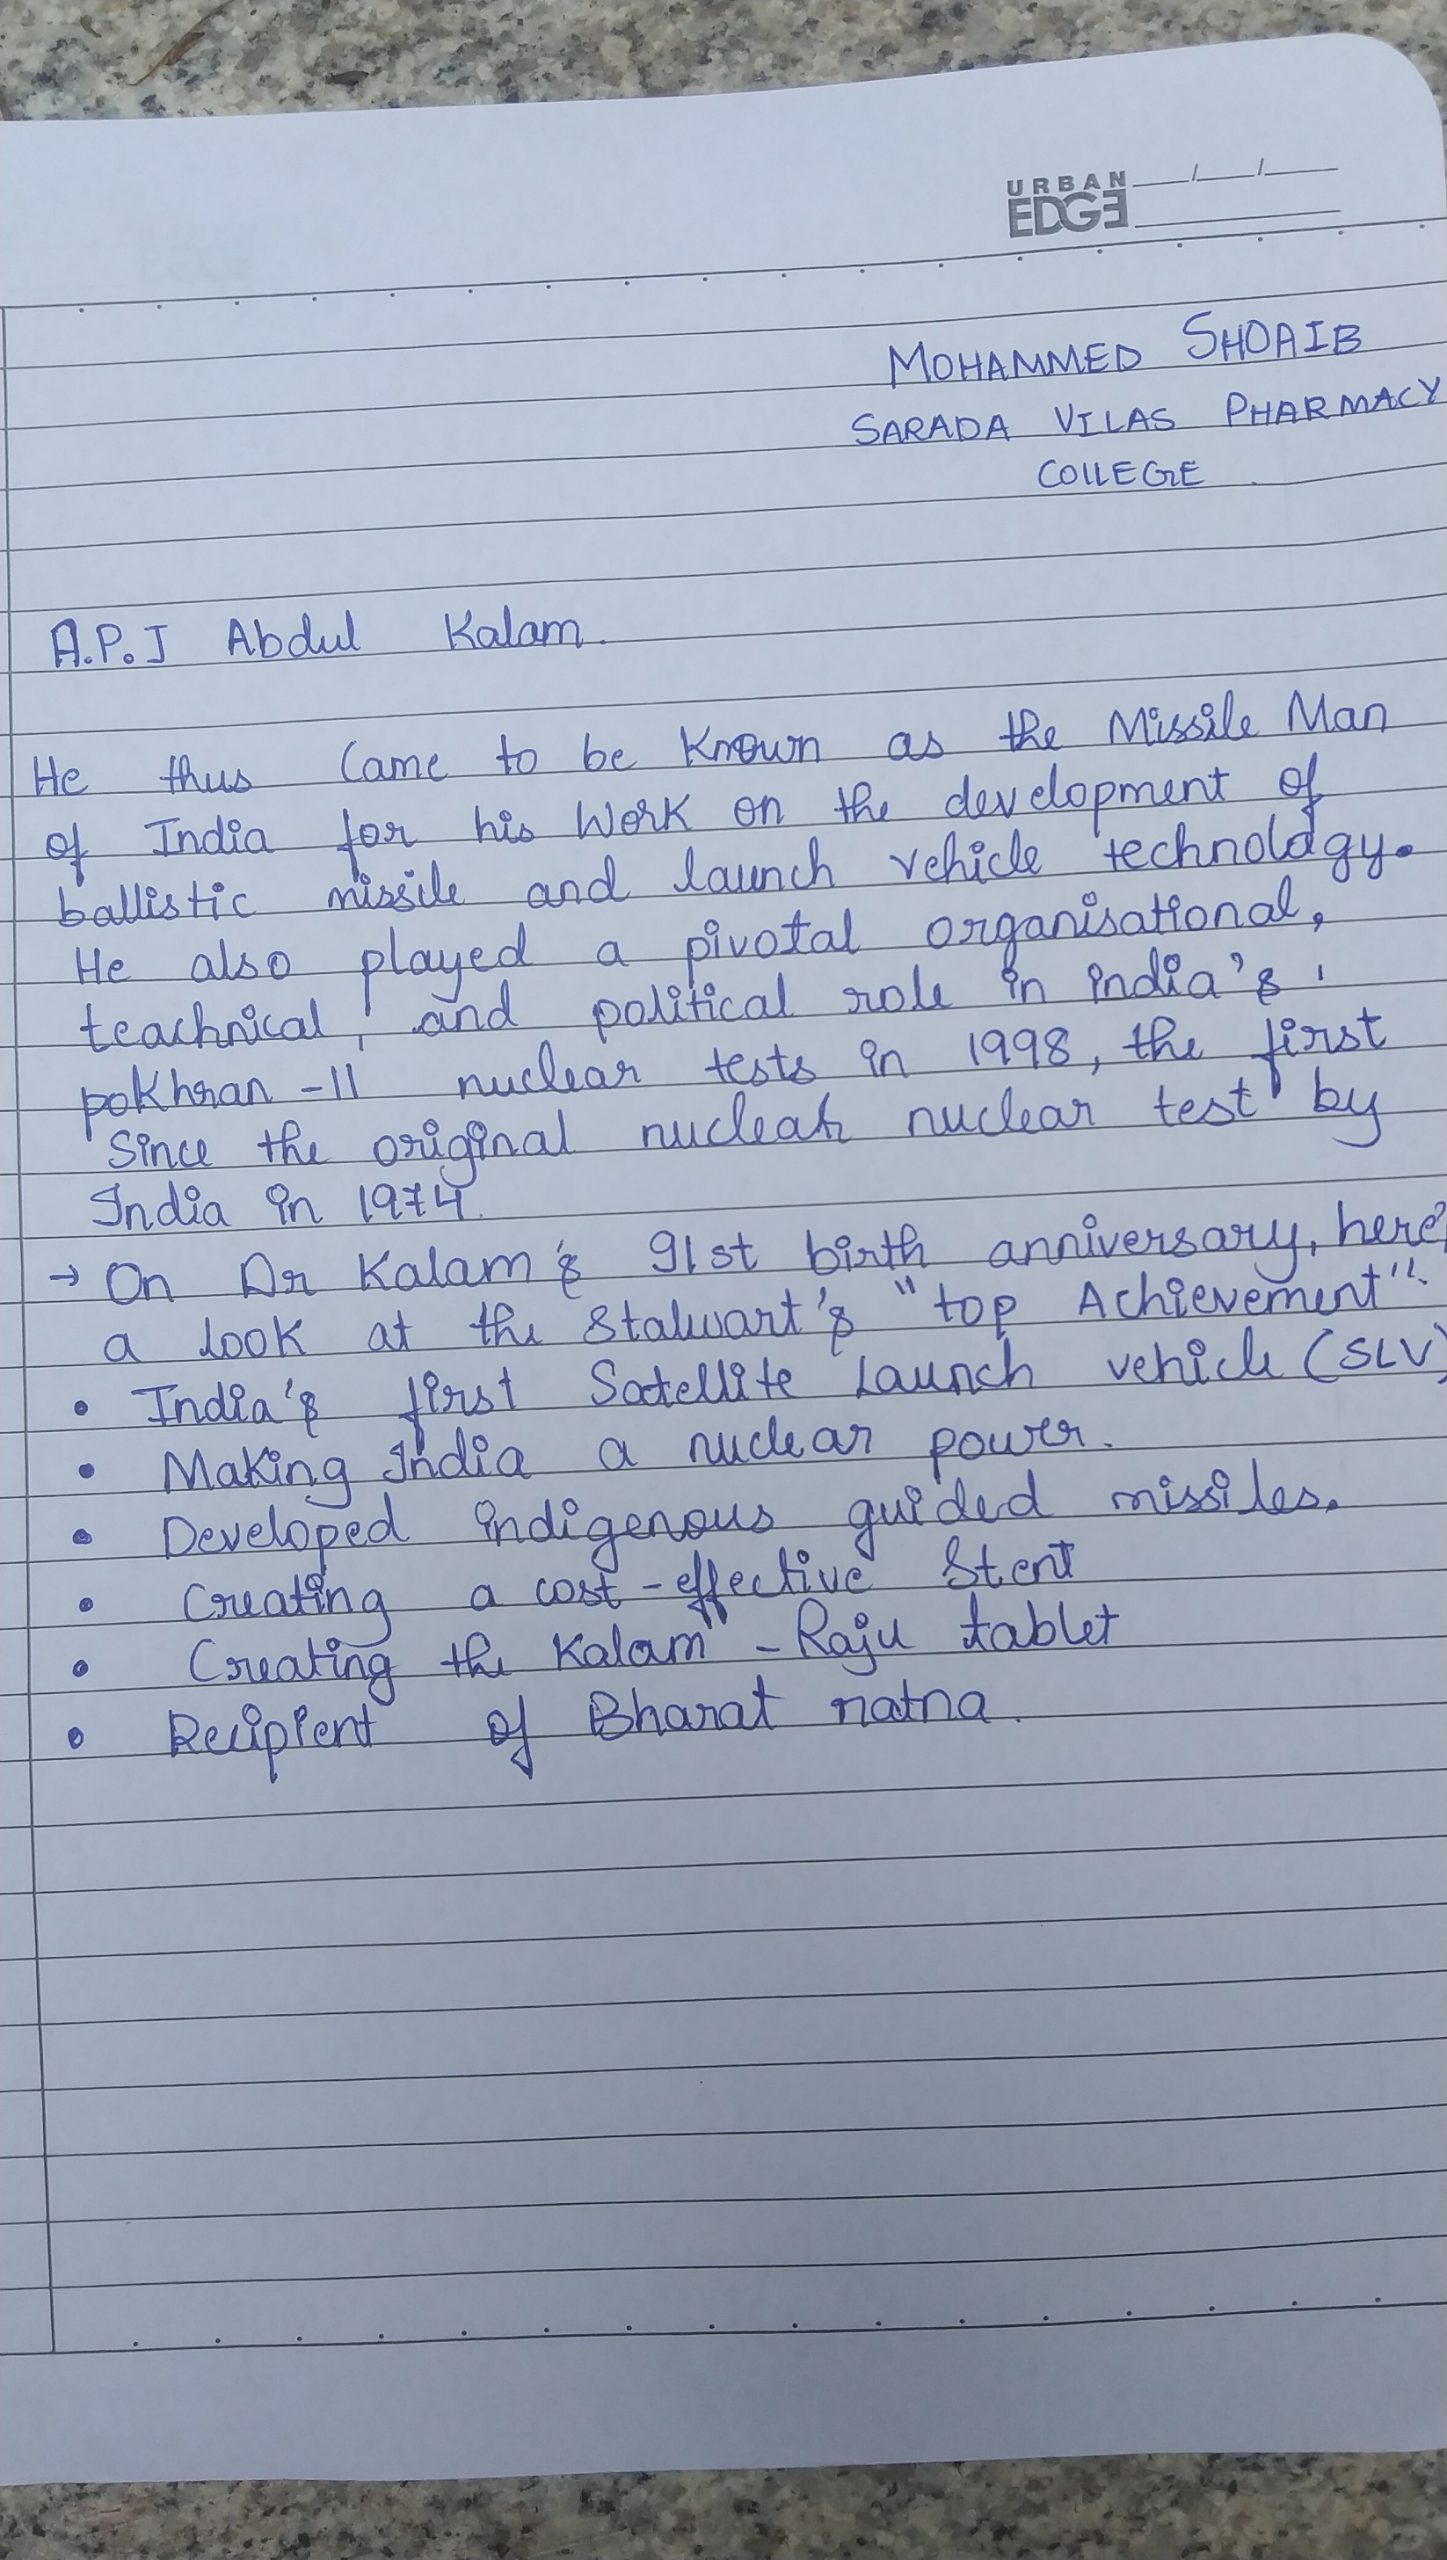 URBAN
EDGE
MOHAMMED SHOAIB
SARADA VILAS PHARMACY
COllEGE
A.P.J Abdul Kalam.
He thus Came to be Known as the Missile Man
of India for his Work on the development of
ballistic missile and launch vehicle technology.
He also played a pivotal organisational,
teachnical, and political role in india's
pokhran -II nuclear tests in 1998, the first
Since the original nuclear nuclear test by
India in 1974.
→ On Dr Kalam's 91st birth anniversary, here,
a look at the stalwart's "top Achievement".
• India's first Satellite Launch vehicle (SLV)
• Making India a nuclear power.
• Developed indigenous guided missiles.
• Creating a cost-effective Stent
• Creating the Kalam - Raju tablet
• Recipient of Bharat ratna.